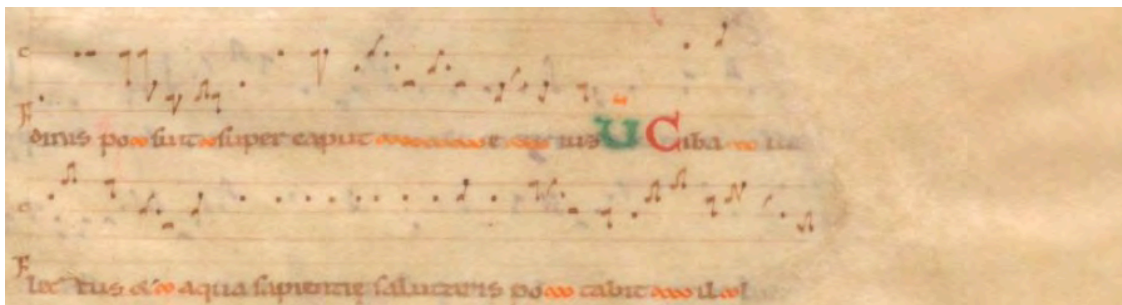 dnus po suit super caput e ius V Ciba uit
lec tus & aqua sapientię salutaris po tabit il l